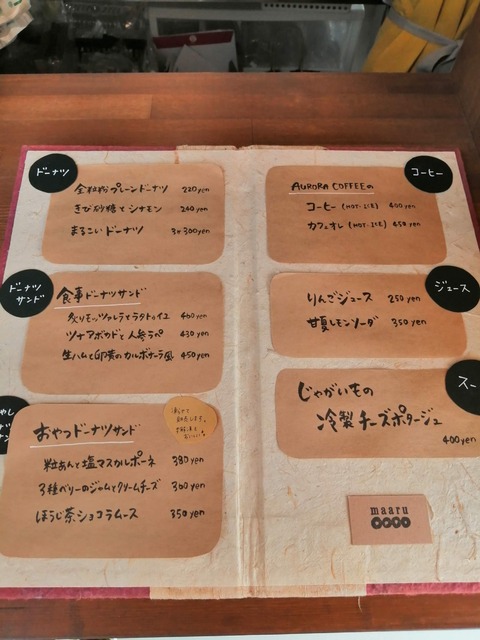 ドーナツ
全粒粉プレーンドーナツ 220yen
きび砂糖とシナモン 240yen
まるこいドーナツ 3ヶ300yen
ドーナツ
サンド
食事ドーナツサンド
炙りモッツァレラとラタトゥイユ 400yen
ツナアボカドと人参ラペ 430yen
生ハムと卵黄のカルボナーラ風 450yen
おやつドーナツサンド
粒あんと塩マスカルポーネ 380yen
3種ベリーのジャムとクリームチーズ 360yen
ほうじ茶ショコラムース 350yen
コーヒー
AURORA COFFEEの
コーヒー (HOT・ICE) 400yen
カフェオレ (HOT・ICE) 450yen
ジュース
りんごジュース 250yen
甘夏レモンソーダ 350yen
スー
じゃがいもの
冷製チーズポタージュ
400yen
maaru